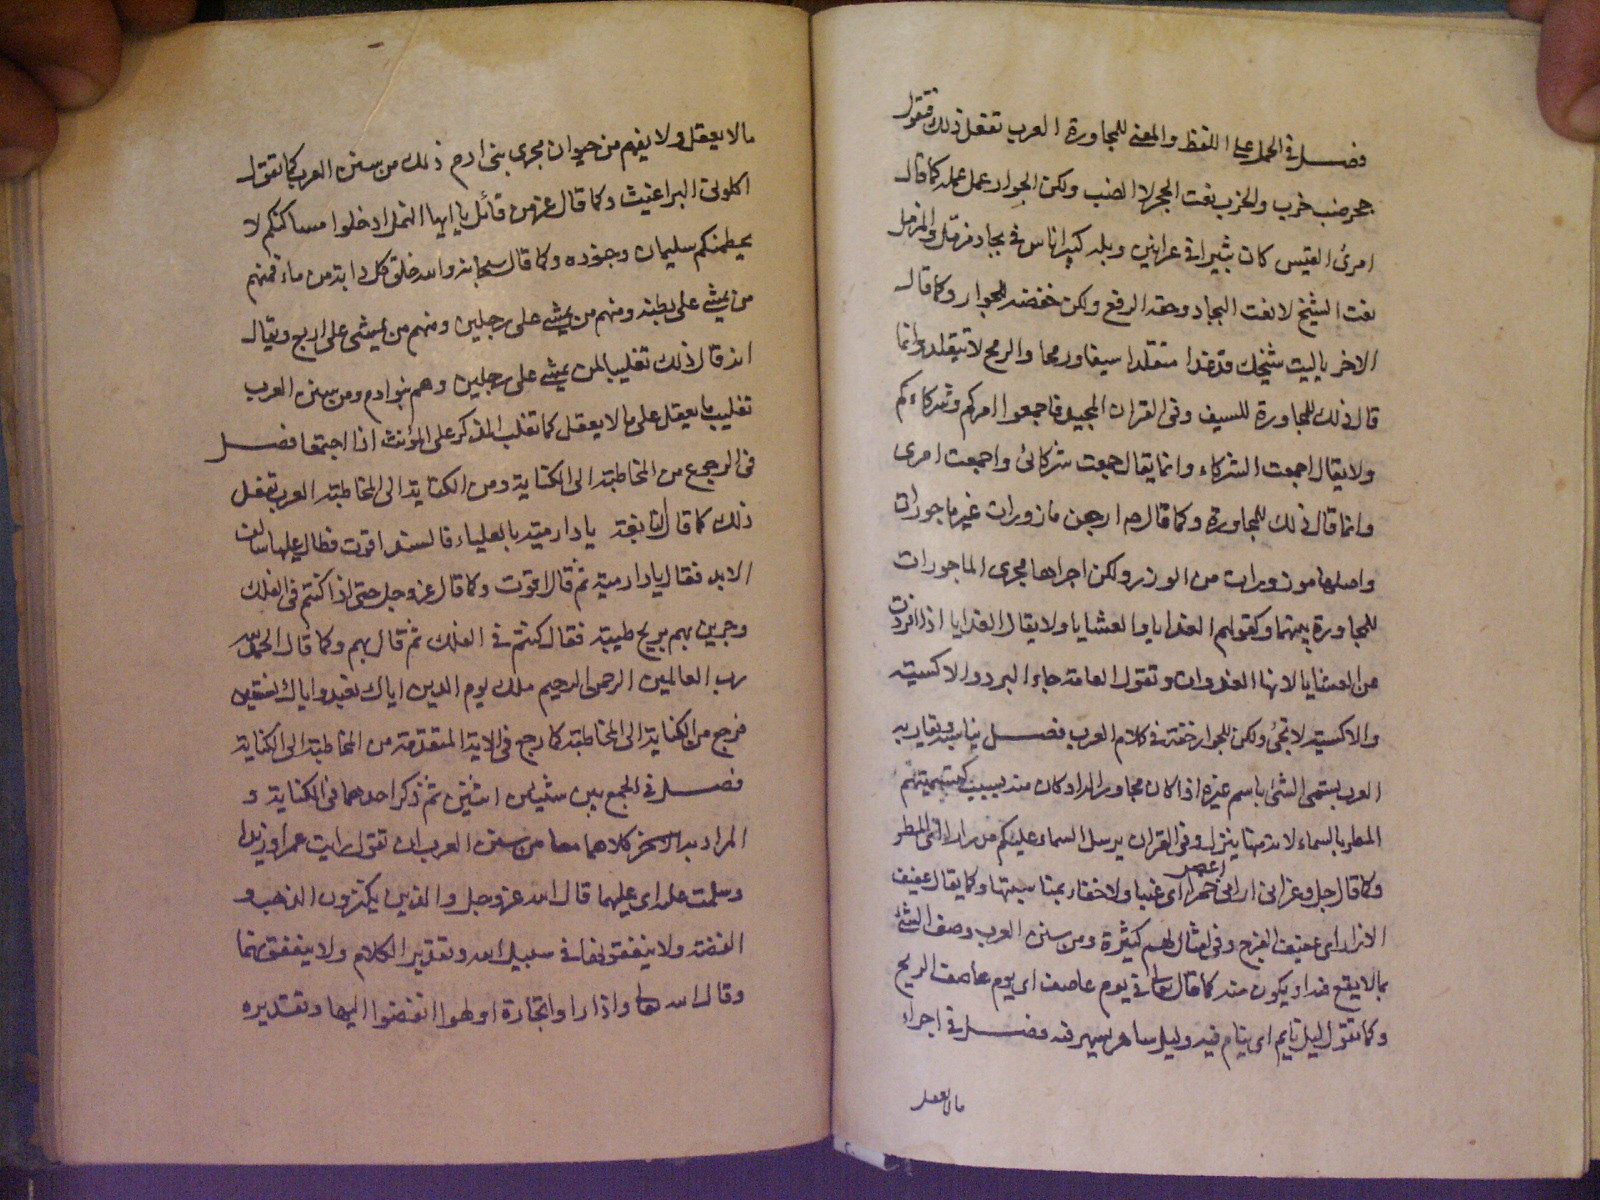 فصل في الحمل على اللفظ والمعنى للمجاورة العرب تفعل ذلك فتقول
جحر ضب خرب والخرب نعت الجحر لا الضب ولكن الجوار عمل عمله كما قال
امرئ القيس كان ثبيرا في عرانين وبله كبير اناس في بجاد مزمل والمزمل
نعت الشيخ لا نعت البجاد وحقه الرفع ولكن خفضه للجوار وكما قال
الاخر ياليت شيخك قد غدا متقلدا سيفا ورمحا والرمح لا يتقلد وانما
قال ذلك للمجاورة للسيف وفي القران المجيد فاجمعوا امركم وشركاءكم
ولا يقال اجمعت الشركاء وانما يقال جمعت شركائى واجمعت امرى
وانما قال ذلك للمجاورة وكما قال ص ارجعن مازورات غير ماجورات
واصلها موزورات من الوزر ولكن اجراها مجرى الماجورات
للمجاورة بينهما وكقولهم الغدايا والعشايا ولا يقال الغدايا اذا افردت
عن العشايا لانها الغدوات وتقول العامة جاء البرد والاكسية
والاكسية لا تجئ ولكن للجوار حقه في كلام العرب فصل يناسبه ويقاربه
العرب تسمى الشئ باسم غيره اذا كان مجاورا له او كان منه بسبب كتسميتهم
المطر بالسماء لانه منها ينزل وفي القران يرسل السماء عليكم مدرارا اى المطر
وكما قال جل وعز انى ارانى اعصر خمرا اى عنبا ولا خفاء بمناسبتها وكما يقال عفيف
الازار اى عفيف الفرج وفي امثال لهم كثيرة ومن سنن العرب وصف الشئ
بما لا يقع فيه او يكون منه كما قال تعالى في يوم عاصف اى يوم عاصف الريح
وكما تقول ليل نايم اى ينام فيه وليل ساهر يسهر فيه فصل في اجراء
ما لا يعقل
ما لا يعقل ولا يفهم من حيوان مجرى بنى ادم ذلك من سنن العرب كما تقول
اكلونى البراغيث وكما قال عز من قائل يا ايها النمل ادخلوا مساكنكم لا
يحطمنكم سليمان وجنوده وكما قال سبحانه والله خلق كل دابة من ماء فمنهم
من يمشى على بطنه ومنهم من يمشى على رجلين ومنهم من يمشى على اربع ويقال
انه قال ذلك تغليبا لمن يمشى على رجلين وهم بنو ادم ومن سنن العرب
تغليب ما يعقل على ما لا يعقل كما تغلب المذكر على المؤنث اذا اجتمعا فصل
في الرجوع من المخاطبة الى الكناية ومن الكناية الى المخاطبة العرب تفعل
ذلك كما قال النابغة يا دار مية بالعلياء فالسند اقوت فطال عليها سالف
الابد فقال يا دار مية ثم قال اقوت وكما قال عز وجل حتى اذا كنتم في الفلك
وجرين بهم بريح طيبة فقال كنتم في الفلك ثم قال بهم وكما قال الحمد لله
رب العالمين الرحمن الرحيم ملك يوم الدين اياك نعبد واياك نستعين
فرجع من الكناية الى المخاطبة كما رجع في الاية المتقدمة من المخاطبة الى الكناية
فصل في الجمع بين شيئين اثنين ثم ذكر احدهما في الكناية و
المراد به الاخر كلاهما معا من سنن العرب ان تقول رايت عمرا وزيدا
وسلمت عليه اى عليهما قال الله عز وجل والذين يكنزون الذهب و
الفضة ولا ينفقونها في سبيل الله وتقدير الكلام ولا ينفقونهما
وقال الله تعالى واذا راوا تجارة او لهوا انفضوا اليها وتقديره